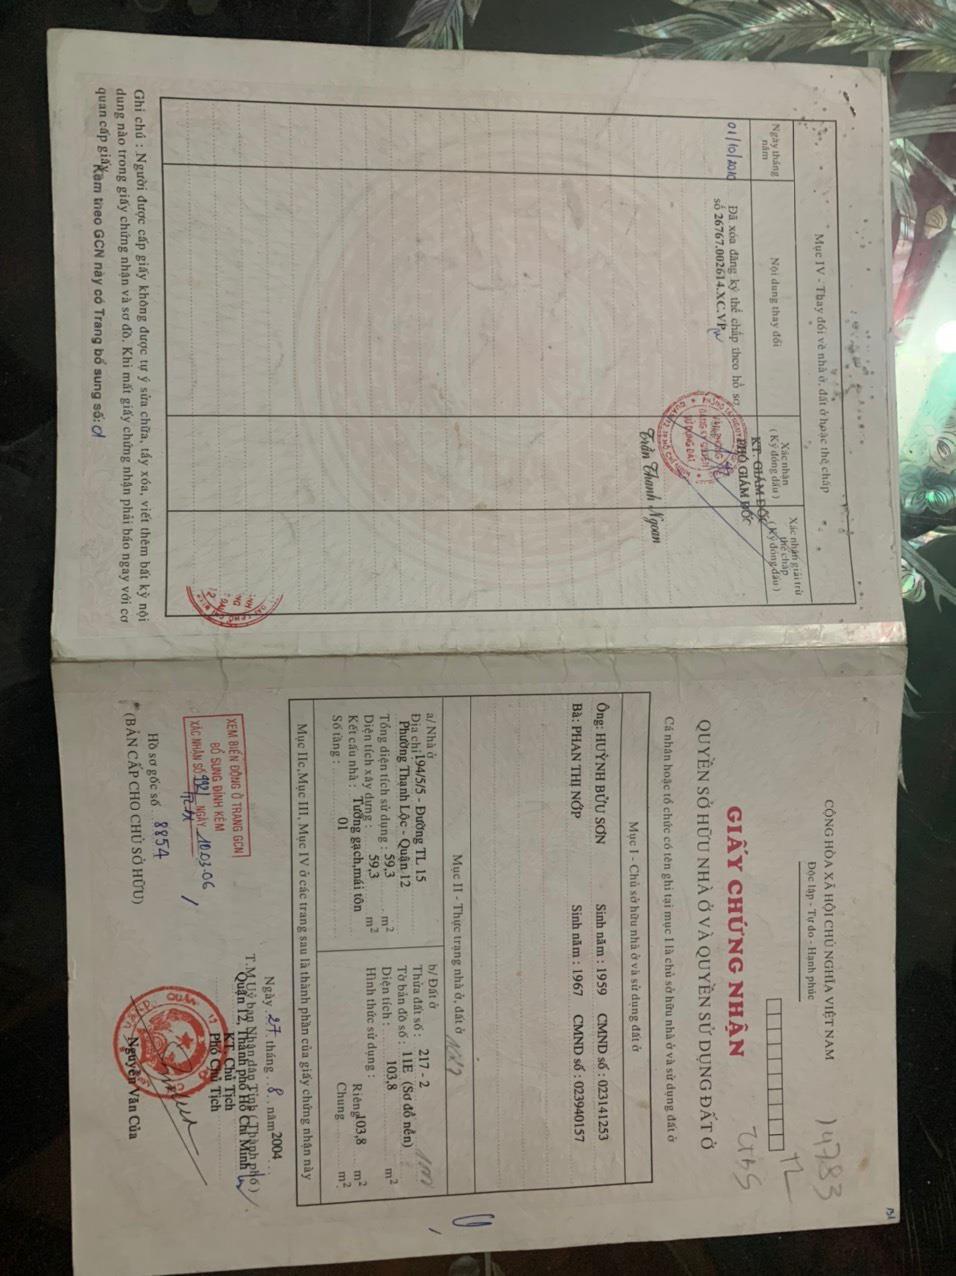 CỘNG HÒA XÃ HỘI CHỦ NGHĨA VIỆT NAM
Độc lập - Tự do - Hạnh phúc
14783
TL
GIẤY CHỨNG NHẬN
QUYỀN SỞ HỮU NHÀ Ở VÀ QUYỀN SỬ DỤNG ĐẤT Ở
Cá nhân hoặc tổ chức có tên ghi tại mục I là chủ sở hữu nhà ở và sử dụng đất ở
Mục I - Chủ sở hữu nhà ở và sử dụng đất ở
Ông: HUỲNH BỬU SƠN Sinh năm : 1959 CMND số : 023141253
Bà: PHAN THỊ NỚP Sinh năm : 1967 CMND số : 023940157
Mục II - Thực trạng nhà ở, đất ở
a/ Nhà ở
Địa chỉ 194/5/5 - Đường TL 15
Phường Thạnh Lộc - Quận 12
Tổng diện tích sử dụng : 59,3 m²
Diện tích xây dựng : 59,3 m²
Kết cấu nhà : Tường gạch,mái tôn
Số tầng : 01
b/ Đất ở
Thửa đất số : 217 - 2
Tờ bản đồ số : 11E (Sơ đồ nền)
Diện tích : 103,8 m²
Hình thức sử dụng :
Riêng 103,8 m²
Chung m²
Mục IIc, Mục III, Mục IV ở các trang sau là thành phần của giấy chứng nhận này
Ngày 27 tháng 8 năm 2004
T.M Uỷ ban Nhân dân Tỉnh ( Thành phố )
Quận 12, Thành phố Hồ Chí Minh
KT. Chủ Tịch
Phó Chủ Tịch
QUẬN 12
Nguyễn Văn Của
XEM BIẾN ĐỘNG Ở TRANG GCN
BỔ SUNG ĐÍNH KÈM
XÁC NHẬN SỐ NGÀY 10.03.06
Hồ sơ gốc số 8854
(BẢN CẤP CHO CHỦ SỞ HỮU)
Mục IV - Thay đổi về nhà ở, đất ở hoặc thế chấp
Ngày tháng năm
Nội dung thay đổi
Xác nhận
( Ký đóng dấu )
Xác nhận giải trừ
thế chấp
( Ký đóng dấu )
01/10/2010
Đã xóa đăng ký thế chấp theo hồ sơ
số 26767.002614.XC.VP
KT. GIÁM ĐỐC
PHÓ GIÁM ĐỐC
Trần Thanh Ngoan
Ghi chú : Người được cấp giấy không được tự ý sửa chữa, tẩy xóa, viết thêm bất kỳ nội
dung nào trong giấy chứng nhận và sơ đồ. Khi mất giấy chứng nhận phải báo ngay với cơ
quan cấp giấy.
Kèm theo GCN này có Trang bổ sung số: 01